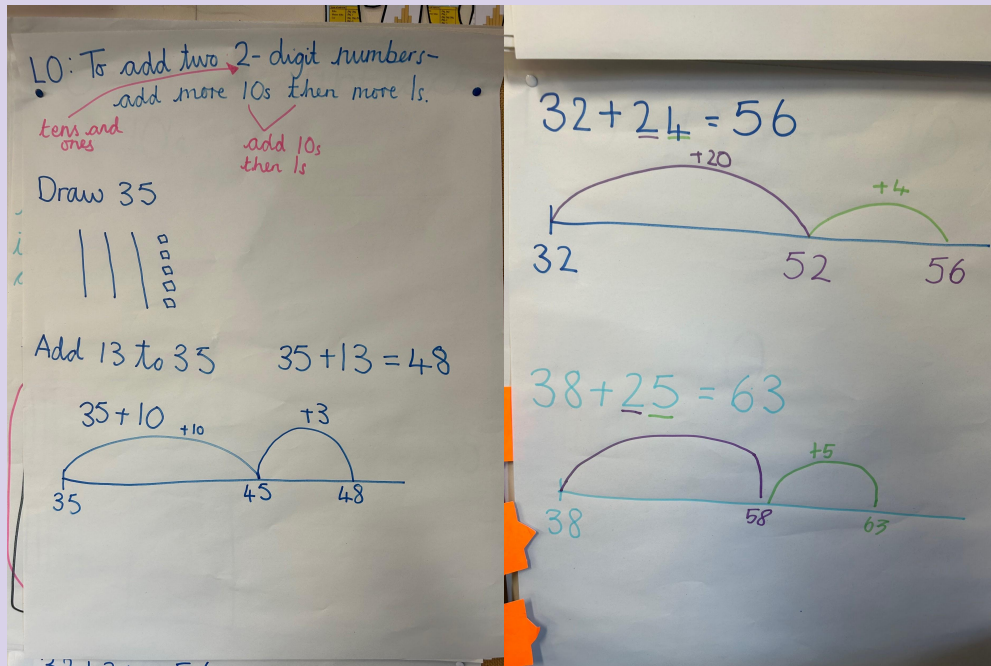 LO: To add two 2-digit numbers-
add more 10s then more 1s.
tens and
ones
add 10s
then 1s
Draw 35
Add 13 to 35
35+13=48
35+10
+10
+3
35
45
48
32+24=56
+20
+4
32
52
56
38+25=63
+5
38
58
63